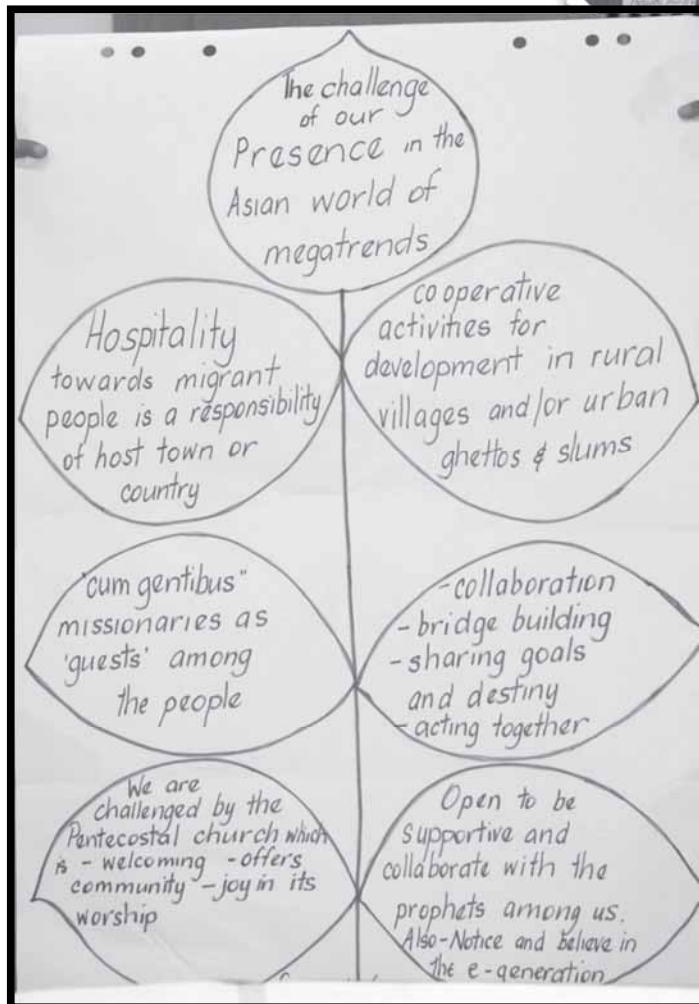 The challenge
of our
Presence in the
Asian world of
megatrends
Hospitality
towards migrant
people is a responsibility
of host town or
country
cooperative
activities for
development in rural
villages and/or urban
ghettos & slums
"cum gentibus"
missionaries as
'guests' among
the people
- collaboration
- bridge building
- sharing goals
and destiny
- acting together
We are
challenged by the
Pentecostal church which
is - welcoming - offers
community - joy in its
worship
Open to be
supportive and
collaborate with the
prophets among us.
Also - Notice and believe in
the e-generation